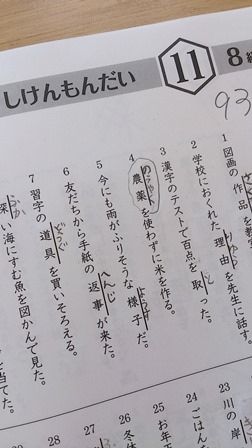 しけんもんだい
11
8
93
1 図画の作品を
2 学校におくれた理由を先生に話す。
3 漢字のテストで百点を取った。
4 農薬を使わずに米を作る。
のうやく
5 今にも雨がふりそうな様子だ。
ようす
6 友だちから手紙の返事が来た。
へんじ
7 習字の道具を買いそろえる。
どうぐ
深い海にすむ魚を図かんで見た。
ふか
当てた。
23 川の岸
24 ごはん
25 お年
26 冬休
27
28
29
30